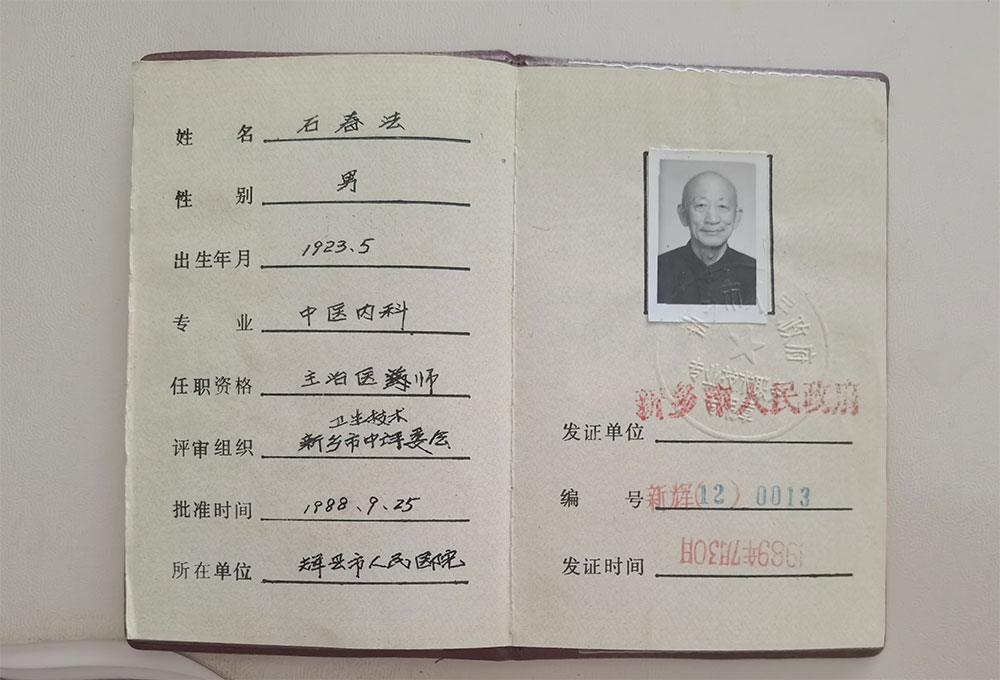 姓 名 石春法
性 别 男
出生年月 1923.5
专 业 中医内科
任职资格 主治医师
卫生技术
评审组织 新乡市中评委会
批准时间 1988.9.25
所在单位 辉县市人民医院
发证单位 新乡市人民政府
编 号 新辉(12)0013
发证时间 1989年7月30日